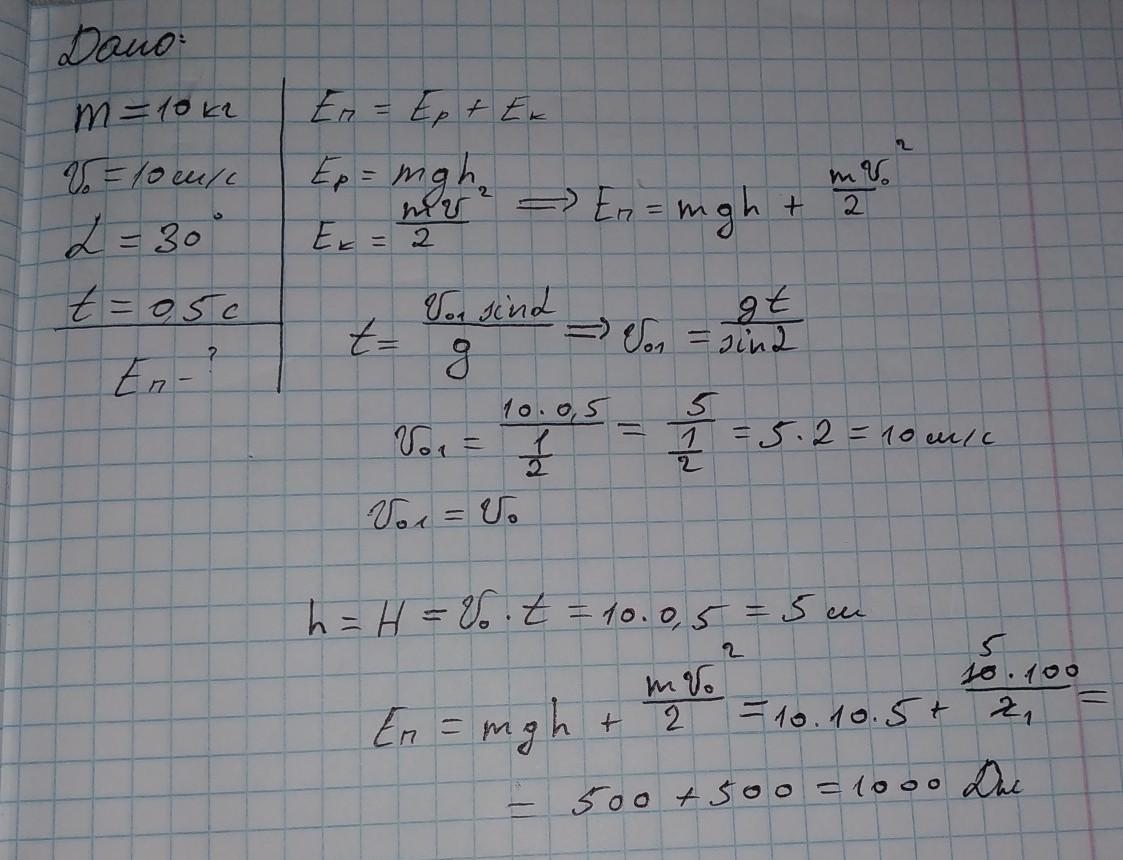 Дано:
m = 10 кг
v₀ = 10 м/с
α = 30°
t = 0,5 с
Eп - ?
Eп = Eр + Eк
Eр = mgh
Eк = mv²/2 ⟹ Eп = mgh + mv₀²/2
t = v₀₁ sinα/g ⟹ v₀₁ = gt/sinα
v₀₁ = 10·0,5/(1/2) = 5/(1/2) = 5·2 = 10 м/с
v₀₁ = v₀
h = H = v₀·t = 10·0,5 = 5 м
Eп = mgh + mv₀²/2 = 10·10·5 + 10·100/2 =
= 500 + 500 = 1000 Дж